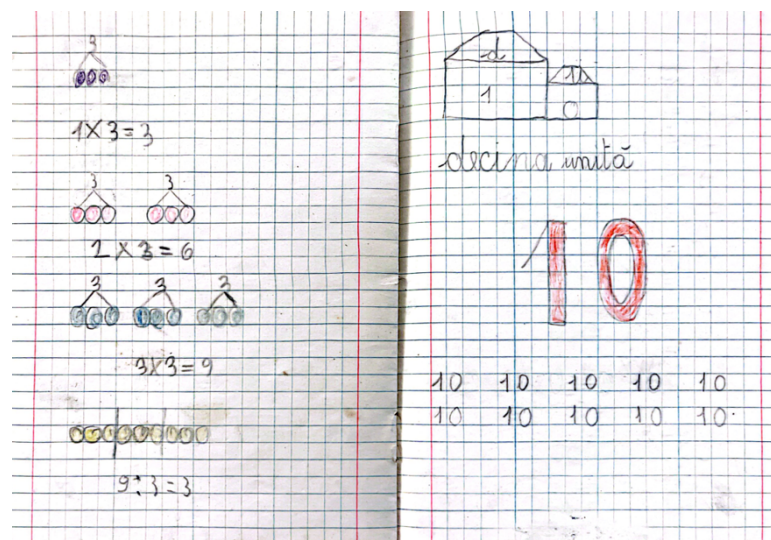 3
1×3=3
3 3
2×3=6
3 3 3
3×3=9
9:3=3
d u
1 0
decina unità
10
10 10 10 10 10
10 10 10 10 10